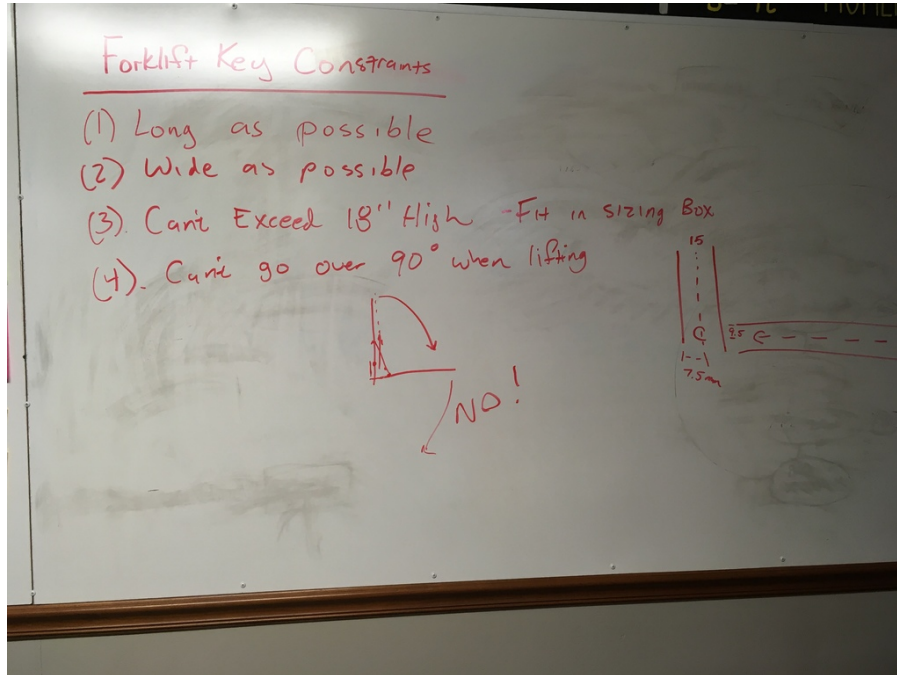 Forklift Key Constraints
(1) Long as possible
(2) Wide as possible
(3). Can't Exceed 18" High - Fit in sizing Box
(4). Can't go over 90° when lifting
NO!
15
7.5mm